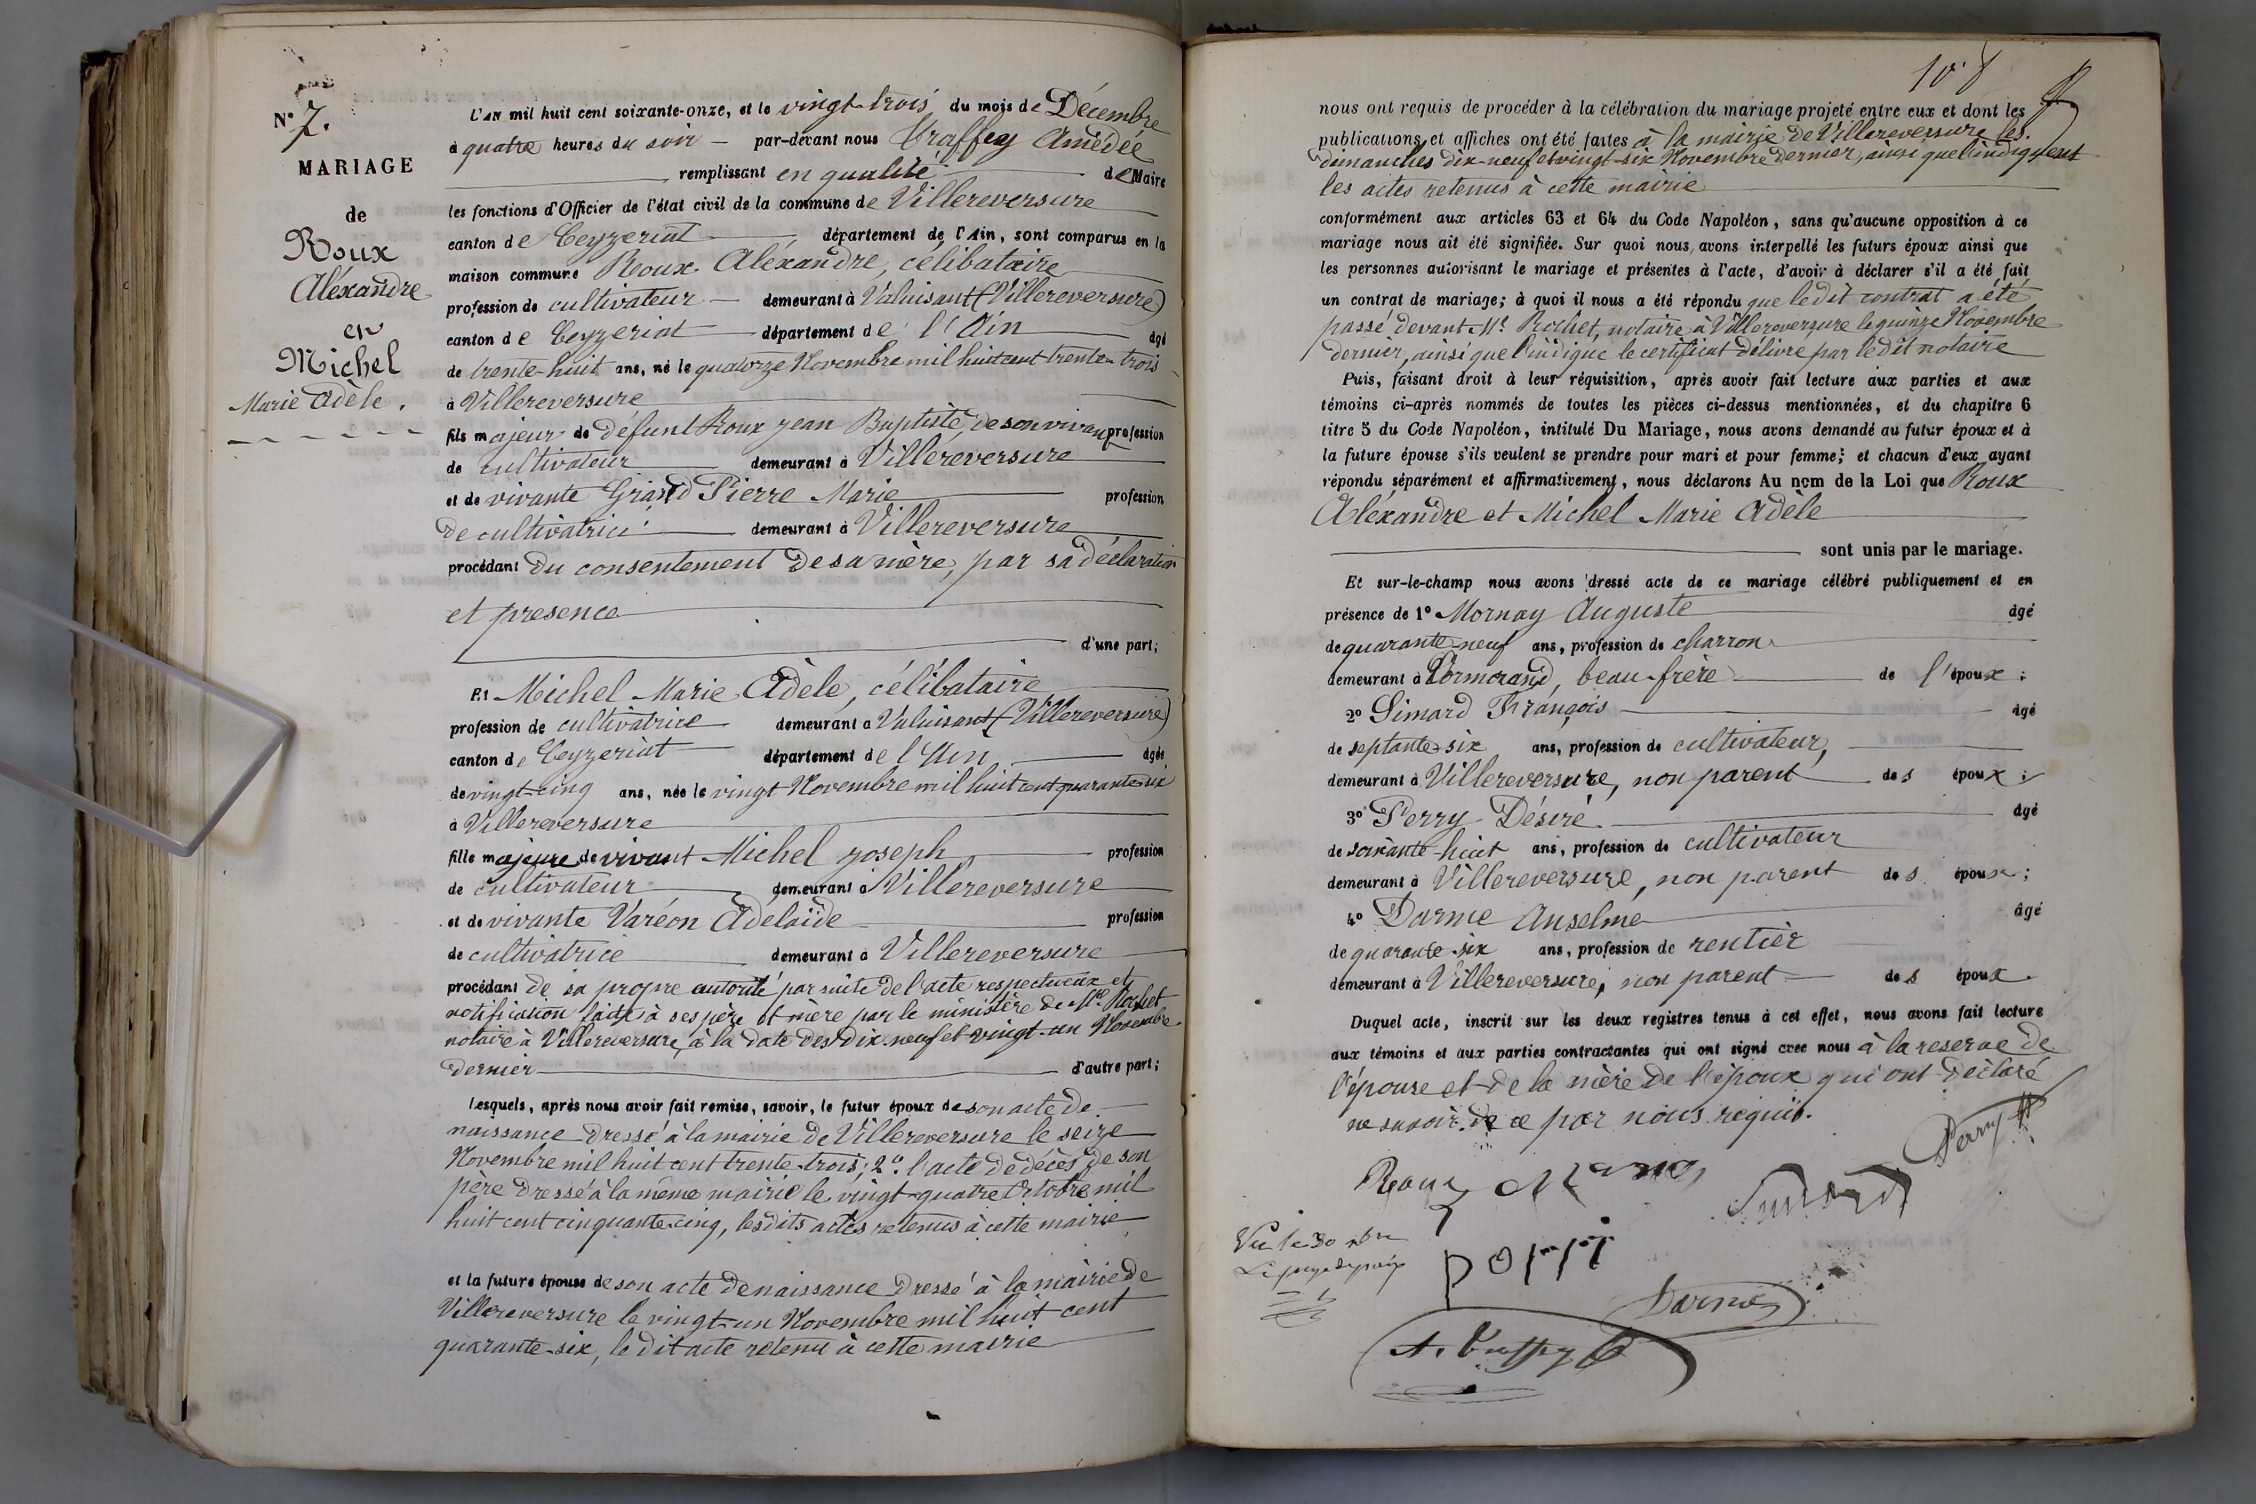 N° 7.
MARIAGE
de
Roux
Aléxandre
et
Michel
Marie Adèle.
L'AN mil huit cent soixante-onze, et le vingt-trois du mois de Décembre
à quatre heures du soir par-devant nous Amédée
remplissant en qualité de Maire
les fonctions d'Officier de l'état civil de la commune de Villereversure
canton de Ceyzeriat département de l'Ain, sont comparus en la
maison commune Roux Aléxandre, célibataire
profession de cultivateur demeurant à Valuisant (Villereversure)
canton de Ceyzeriat département de l'Ain âgé
de trente-huit ans, né le quatorze Novembre mil huit cent trente-trois
à Villereversure
fils majeur de défunt Roux Jean Baptiste, de son vivant profession
de cultivateur demeurant à Villereversure
et de vivante Grand Pierre Marie profession
de cultivatrice demeurant à Villereversure
procédant du consentement de sa mère, par sa déclaration
et presence
d'une part;
Et Michel Marie Adèle, célibataire
profession de cultivatrice demeurant à Valuisant (Villereversure)
canton de Ceyzeriat département de l'Ain âgée
de vingt-cinq ans, née le vingt Novembre mil huit cent quarante-six
à Villereversure
fille majeure de vivant Michel Joseph profession
de cultivateur demeurant à Villereversure
et de vivante Varéon Adelaïde profession
de cultivatrice demeurant à Villereversure
procédant de sa propre autorité par suite de l'acte respectueux et
notification faite à ses père et mère par le ministère de Me Rochet
notaire à Villereversure, à la date des dix-neuf et vingt-un Novembre
dernier d'autre part;
Lesquels, après nous avoir fait remise, savoir, le futur époux de son acte de
naissance dressé à la mairie de Villereversure le seize
Novembre mil huit cent trente-trois; 2° l'acte de décès de son
père dressé à la même mairie le vingt-quatre Octobre mil
huit cent cinquante-cinq, lesdits actes retenus à cette mairie
et la future épouse de son acte de naissance dressé à la mairie de
Villereversure le vingt-un Novembre mil huit cent
quarante-six, le dit acte retenu à cette mairie
nous ont requis de procéder à la célébration du mariage projeté entre eux et dont les
publications et affiches ont été faites à la mairie de Villereversure les
dimanches dix-neuf et vingt-six Novembre dernier, ainsi que l'indiquent
les actes retenus à cette mairie
conformément aux articles 63 et 64 du Code Napoléon, sans qu'aucune opposition à ce
mariage nous ait été signifiée. Sur quoi nous avons interpellé les futurs époux ainsi que
les personnes autorisant le mariage et présentes à l'acte, d'avoir à déclarer s'il a été fait
un contrat de mariage; à quoi il nous a été répondu que le dit contrat a été
passé devant Me Rochet, notaire à Villereversure le quinze Novembre
dernier, ainsi que l'indique le certificat délivré par le dit notaire
Puis, faisant droit à leur réquisition, après avoir fait lecture aux parties et aux
témoins ci-après nommés de toutes les pièces ci-dessus mentionnées, et du chapitre 6
titre 5 du Code Napoléon, intitulé Du Mariage, nous avons demandé au futur époux et à
la future épouse s'ils veulent se prendre pour mari et pour femme; et chacun d'eux ayant
répondu séparément et affirmativement, nous déclarons Au nom de la Loi que Roux
Aléxandre et Michel Marie Adèle
sont unis par le mariage.
Et sur-le-champ nous avons dressé acte de ce mariage célébré publiquement et en
présence de 1° Mornay Auguste âgé
de quarante-neuf ans, profession de charron
demeurant à beau-frère de l'époux;
2° Simard François âgé
de septante-six ans, profession de cultivateur,
demeurant à Villereversure, non parent des époux;
3° Perry Désiré âgé
de soixante-huit ans, profession de cultivateur
demeurant à Villereversure, non parent des époux;
4° Darme Anselme âgé
de quarante-six ans, profession de rentier
demeurant à Villereversure, non parent des époux.
Duquel acte, inscrit sur les deux registres tenus à cet effet, nous avons fait lecture
aux témoins et aux parties contractantes qui ont signé avec nous à la reserve de
l'épouse et de la mère de l'époux qui ont déclaré
ne savoir de ce par nous requis.
Perry
Roux
Darme